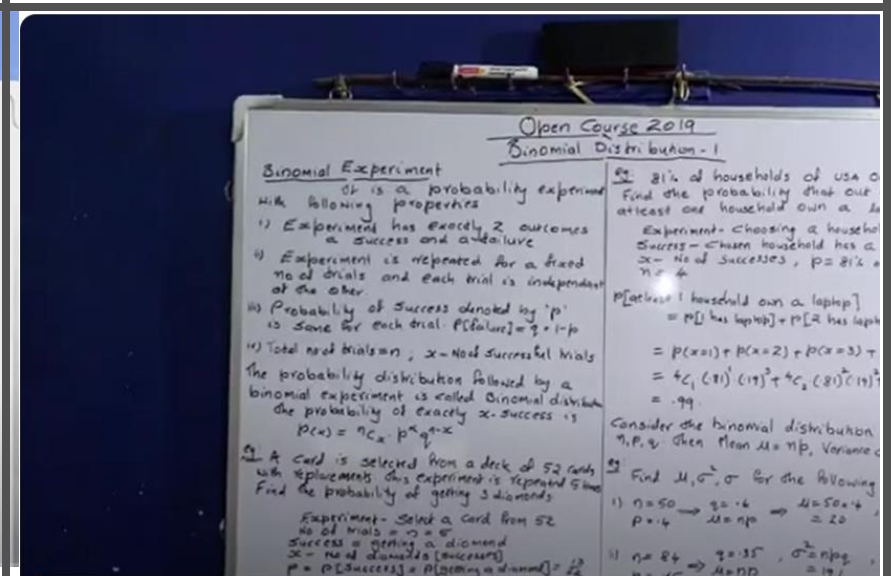 Open Course 2019
Binomial Distribution - 1
Binomial Experiment
It is a probability experiment
with following properties
i) Experiment has exactly 2 outcomes
a success and a failure
ii) Experiment is repeated for a fixed
no of trials and each trial is independant
of the other.
iii) Probability of success denoted by 'p'
is same for each trial. P[failure] = q = 1-p
iv) Total no of trials = n ; x - No of successful trials
The probability distribution followed by a
binomial experiment is called Binomial distribution
The probability of exactly x-success is
P(x) = nCx . p^x q^n-x
eg: A card is selected from a deck of 52 cards
with replacements. This experiment is repeated 5 times
Find the probability of getting 3 diamonds
Experiment - Select a card from 52
No of trials = n = 5
Success = getting a diamond
x - No of diamonds [successes]
p = P[success] = P[getting a diamond] =
eg: 81% of households of USA
Find the probability that out
atleast one household own a
Experiment - Choosing a househol
Success - Chosen household has a
x - No of successes, p = 81%
n = 4
P[atleast 1 household own a laptop]
= P[1 has laptop] + P[2 has lapt
= P(x=1) + P(x=2) + P(x=3) +
= 4C1 (.81)^1 (.19)^3 + 4C2 (.81)^2 (.19)^2
= .99
Consider the binomial distribution
n, p, q. Then Mean μ = np, Variance
eg Find μ, σ², σ for the following
i) n = 50 → q = .6 → μ = 50×.4
p = .4 μ = np = 20
ii) n = 84 → q = .35 , σ² = npq
μ = np